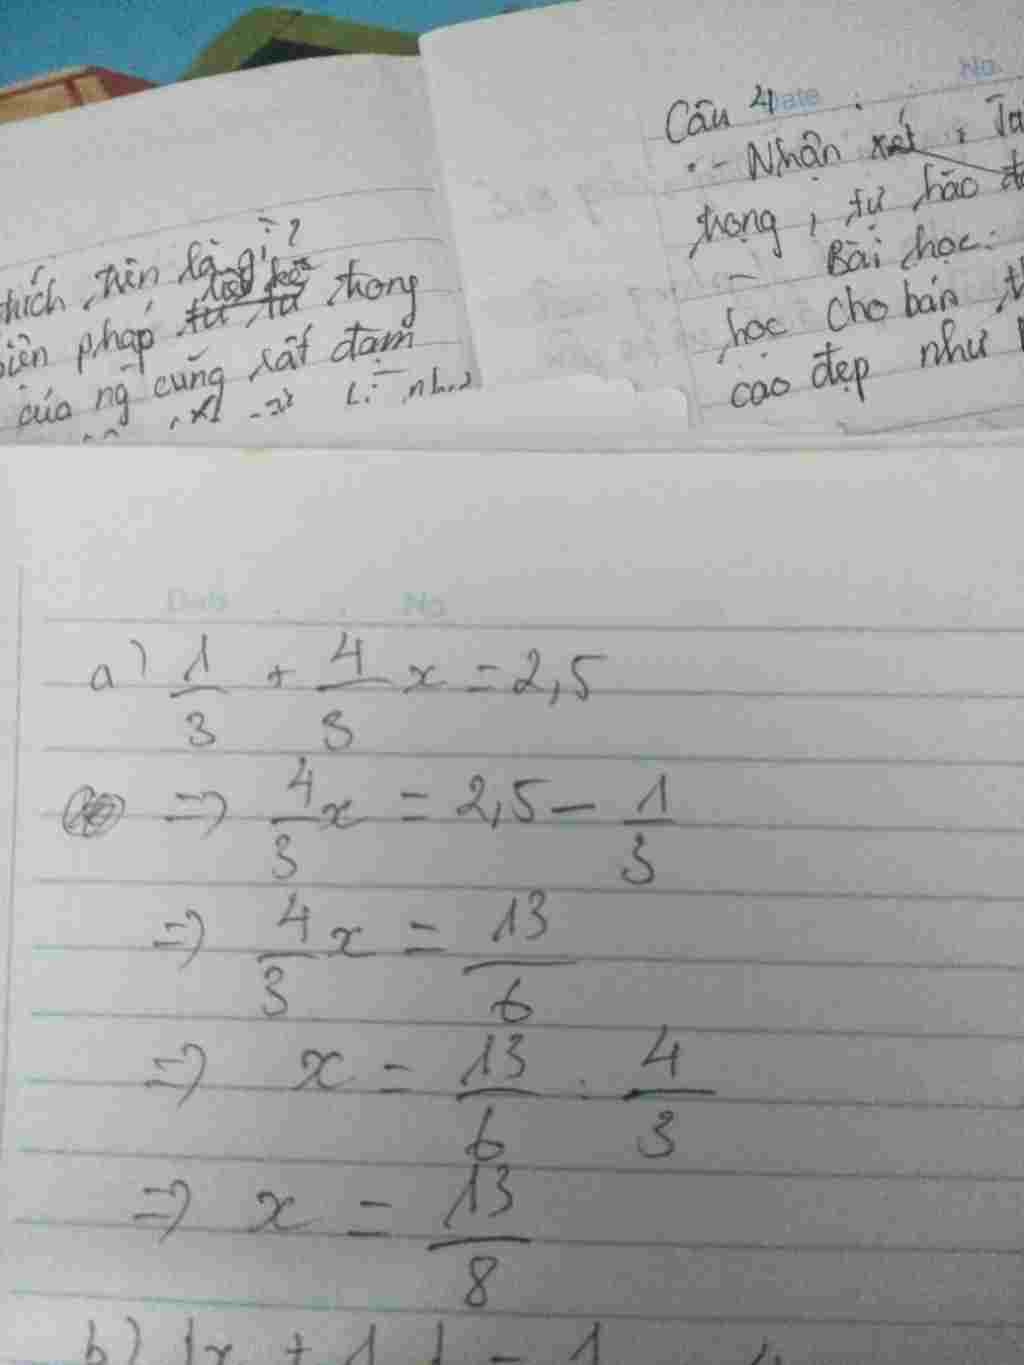 thích trên là gì?
biện pháp trong
của ng cũng rất đạm
Date No.
Câu 4
- Nhận xét : Ta
trọng, tự hào
- Bài học:
học cho bản th
cao đẹp như
Date No
a) 1/3 + 4/3 x = 2,5
=> 4/3 x = 2,5 - 1/3
=> 4/3 x = 13/6
=> x = 13/6 : 4/3
=> x = 13/8
b) |x + 1